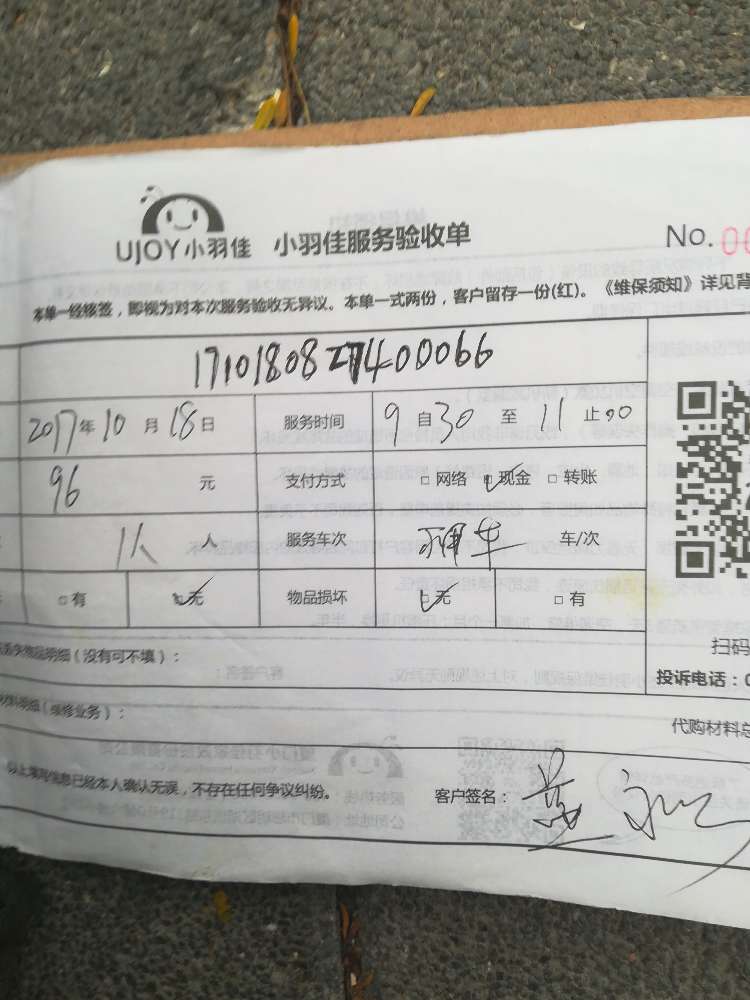 UJOY小羽佳 小羽佳服务验收单 No. 00
本单一经核签，即视为对本次服务验收无异议。本单一式两份，客户留存一份(红)。《维保须知》详见背
2017年10月18日 服务时间 9自30至11止00
96 元 支付方式 □网络 ☑现金 □转账
1人 人 服务车次 车/次
□有 ☑无 物品损坏 ☑无 □有
明细（没有可不填）：
扫码
投诉电话：0
明细（维修业务）：
代购材料总
以上填写信息已经本人确认无误，不存在任何争议纠纷。 客户签名：